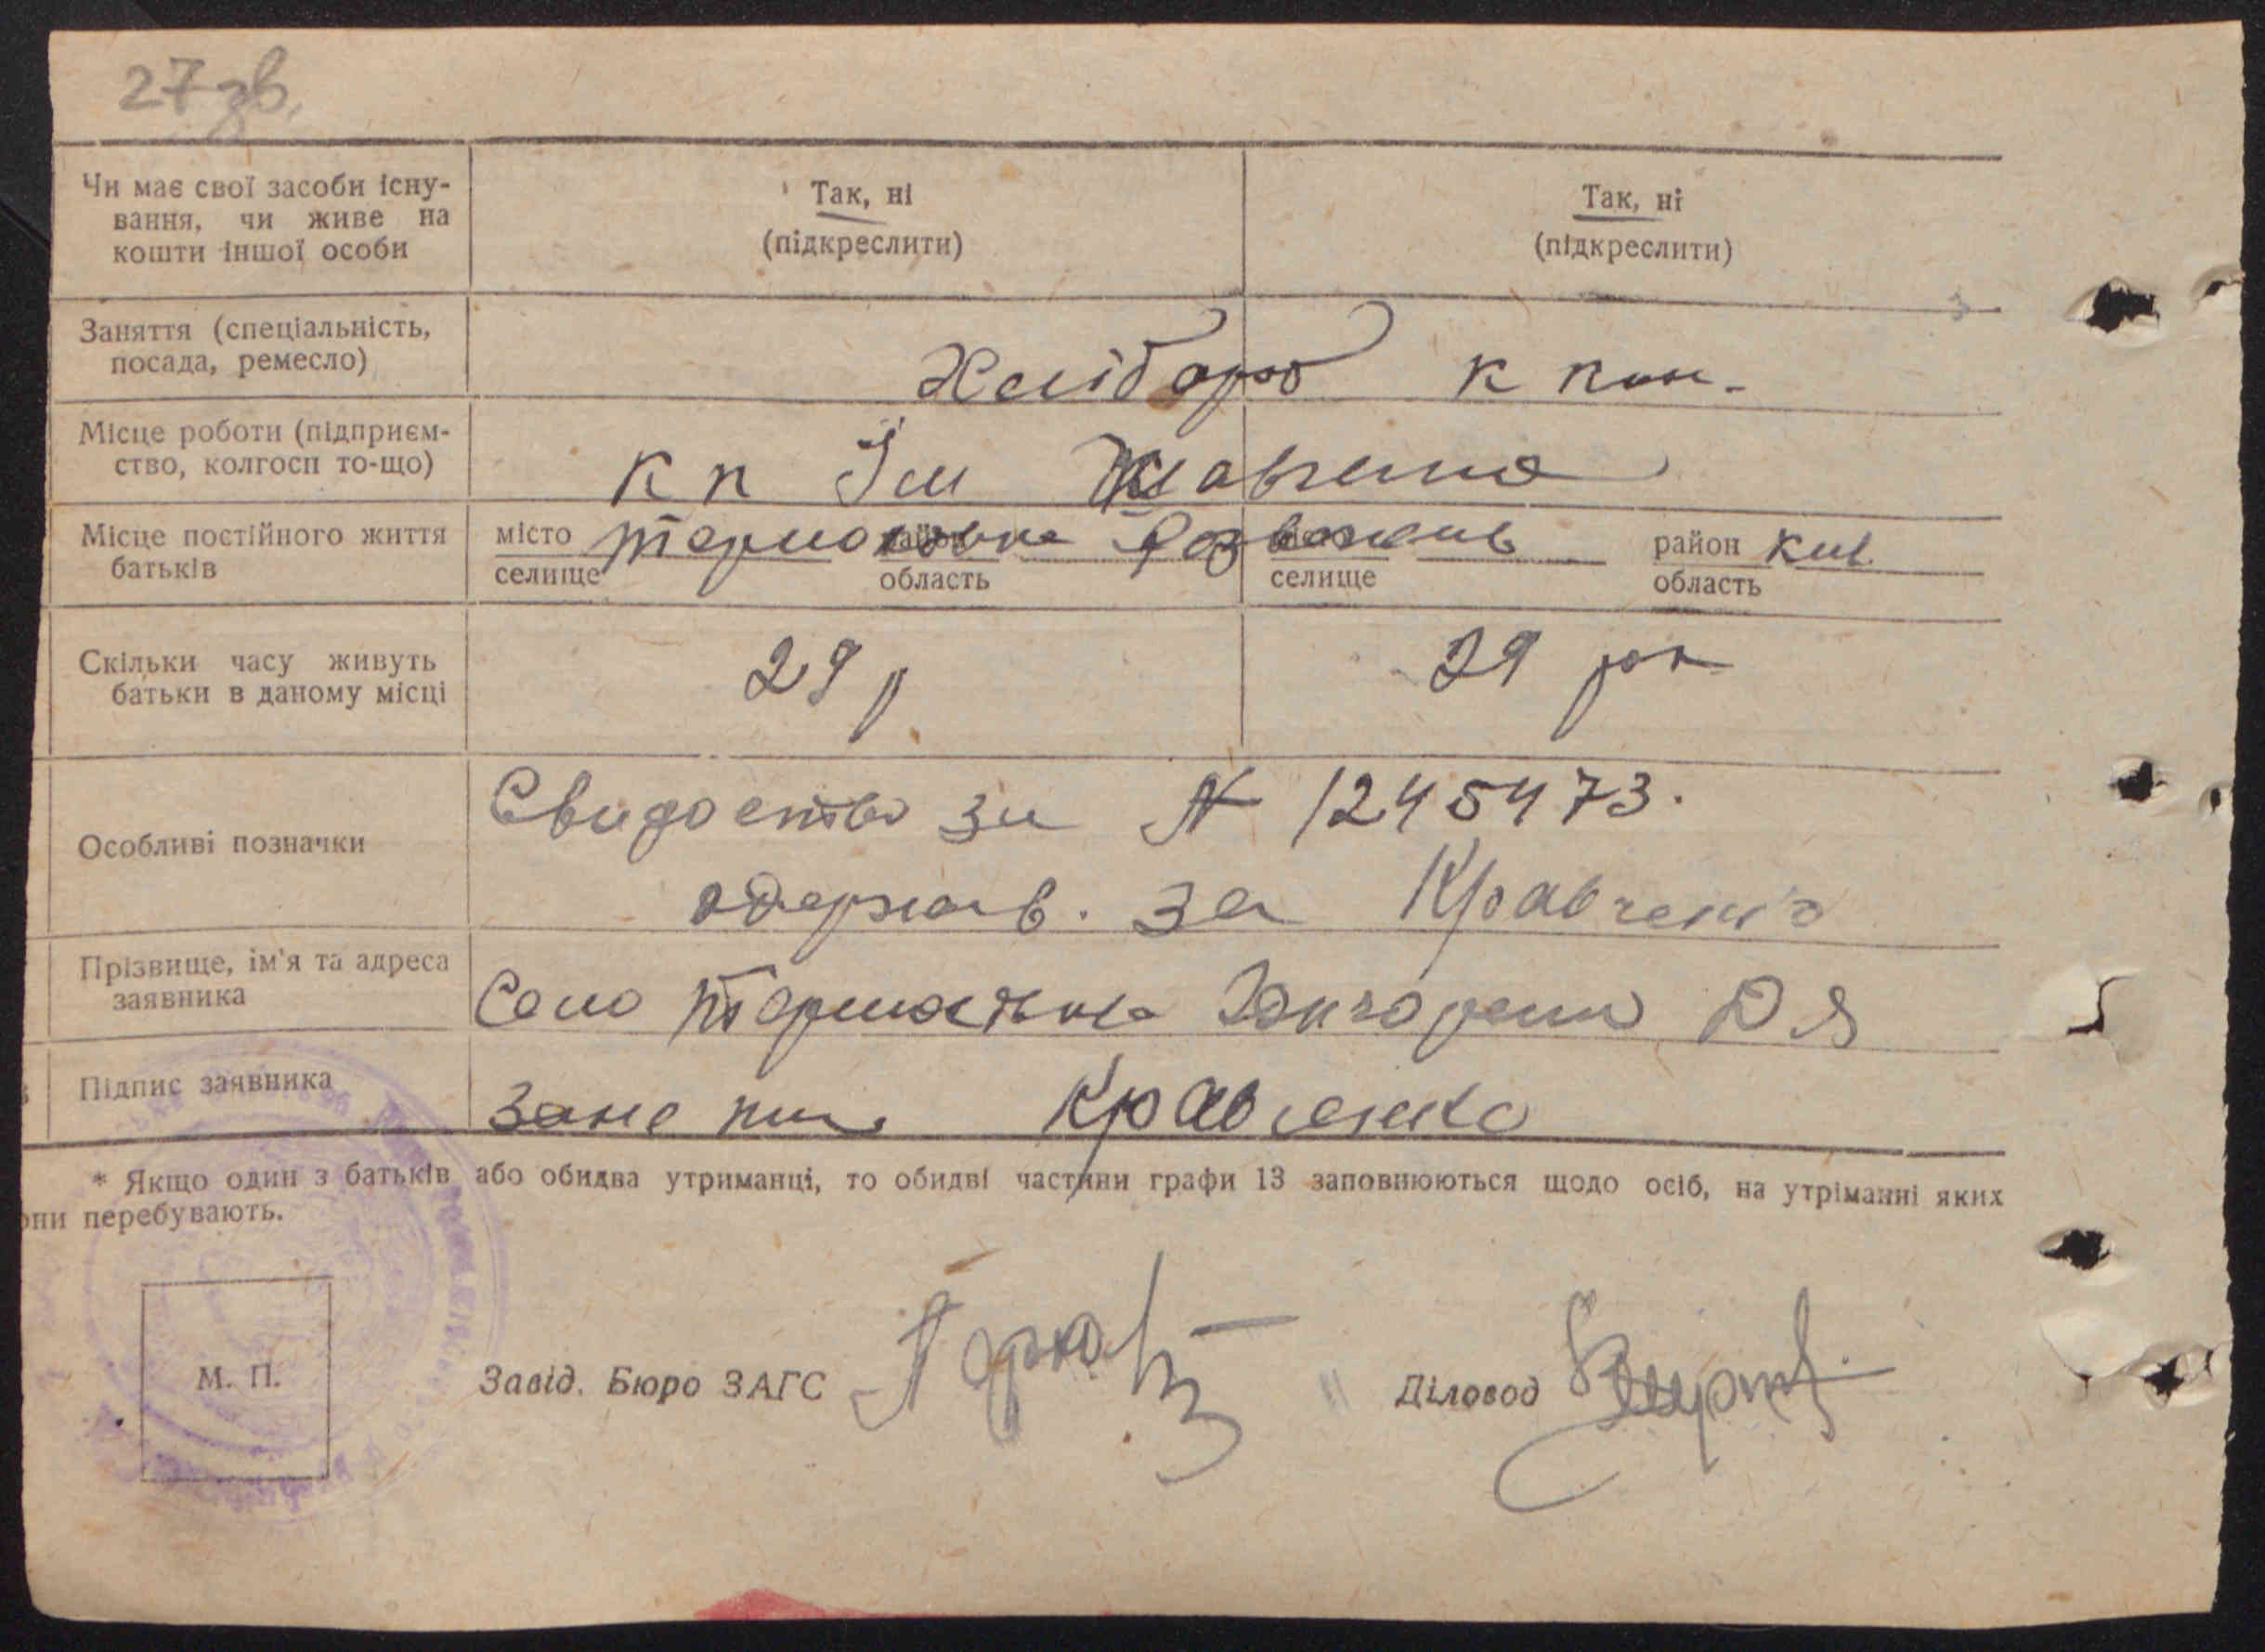 27 зв.
Чи має свої засоби існу-
вання, чи живе на
кошти іншої особи
Так, ні
(підкреслити)
Так, ні
(підкреслити)
Заняття (спеціальність,
посада, ремесло)
Хлібороб к
Місце роботи (підприєм-
ство, колгосп то-що)
к п Ім
Місце постійного життя
батьків
місто
селище
область
селище
район Київ
область
Скільки часу живуть
батьки в даному місці
29 р
29 рок
Особливі позначки
Свидоство за № 1245473.
одержав. за Кравченко
Прізвище, ім'я та адреса
заявника
Село Термахівка
Підпис заявника
Кравченко
* Якщо один з батьків або обидва утриманці, то обидві частини графи 13 заповнюються щодо осіб, на утріманні яких
они перебувають.
М. П.
Завід. Бюро ЗАГС
Діловод